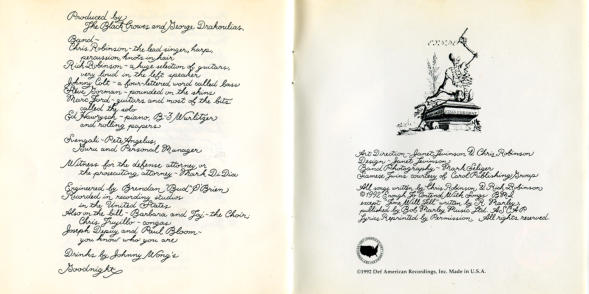 Produced by
The Black Crowes and George Drakoulias.
Band-
Chris Robinson - the lead singer, harps,
percussion, knots in hair
Rich Robinson - a huge selection of guitars,
very loud in the left speaker
Johnny Colt - a four-lettered word called bass
Steve Gorman - pounded on the skins
Marc Ford - guitars and most of the bits
called thy solo
Ed Hawrysch - piano, B-3 Wurlitzer
and rolling papers
Svengali - Pete Angelus,
Guru and Personal Manager
Witness for the defense attorney, or
the prosecuting attorney - Mark Di Dia
Engineered by Brendan "Bud" O'Brien
Recorded in recording studios
in the United States
Also on the bill - Barbara and Joy - the Choir
Chris Trujillo - congas
Joseph and Paul Bloom -
you know who you are
Drinks by Johnny Wong's
Goodnight
Art Direction - Janet Levinson & Chris Robinson
Design - Janet Levinson
Band Photography - Mark
Siamese Twins courtesy of Carol Publishing Group
All songs written by Chris Robinson & Rich Robinson
©1992 Enough To Songs - BMI
except "Time Will Tell" written by R. Marley
published by Bob Marley Music Ltd. ASCAP
Lyrics Reprinted by Permission. All rights reserved
©1992 Def American Recordings, Inc. Made in U.S.A.